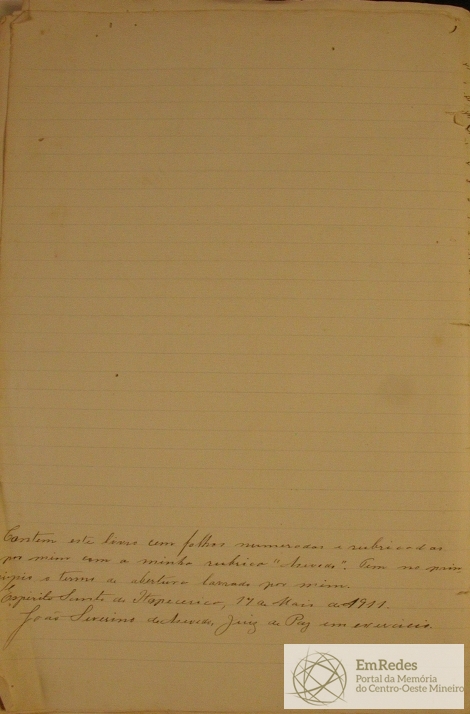 Contem este livro cem folhas numeradas e rubricadas
por mim com a minha rubrica "Azevedo". Tem no prin
cipio o termo de abertura lavrado por mim.
Espirito Santo de Itapecerica, 17 de Maio de 1911.
João Severino de Azevedo, Juiz de Paz em exercicio.
EmRedes
Portal da Memória
do Centro-Oeste Mineiro